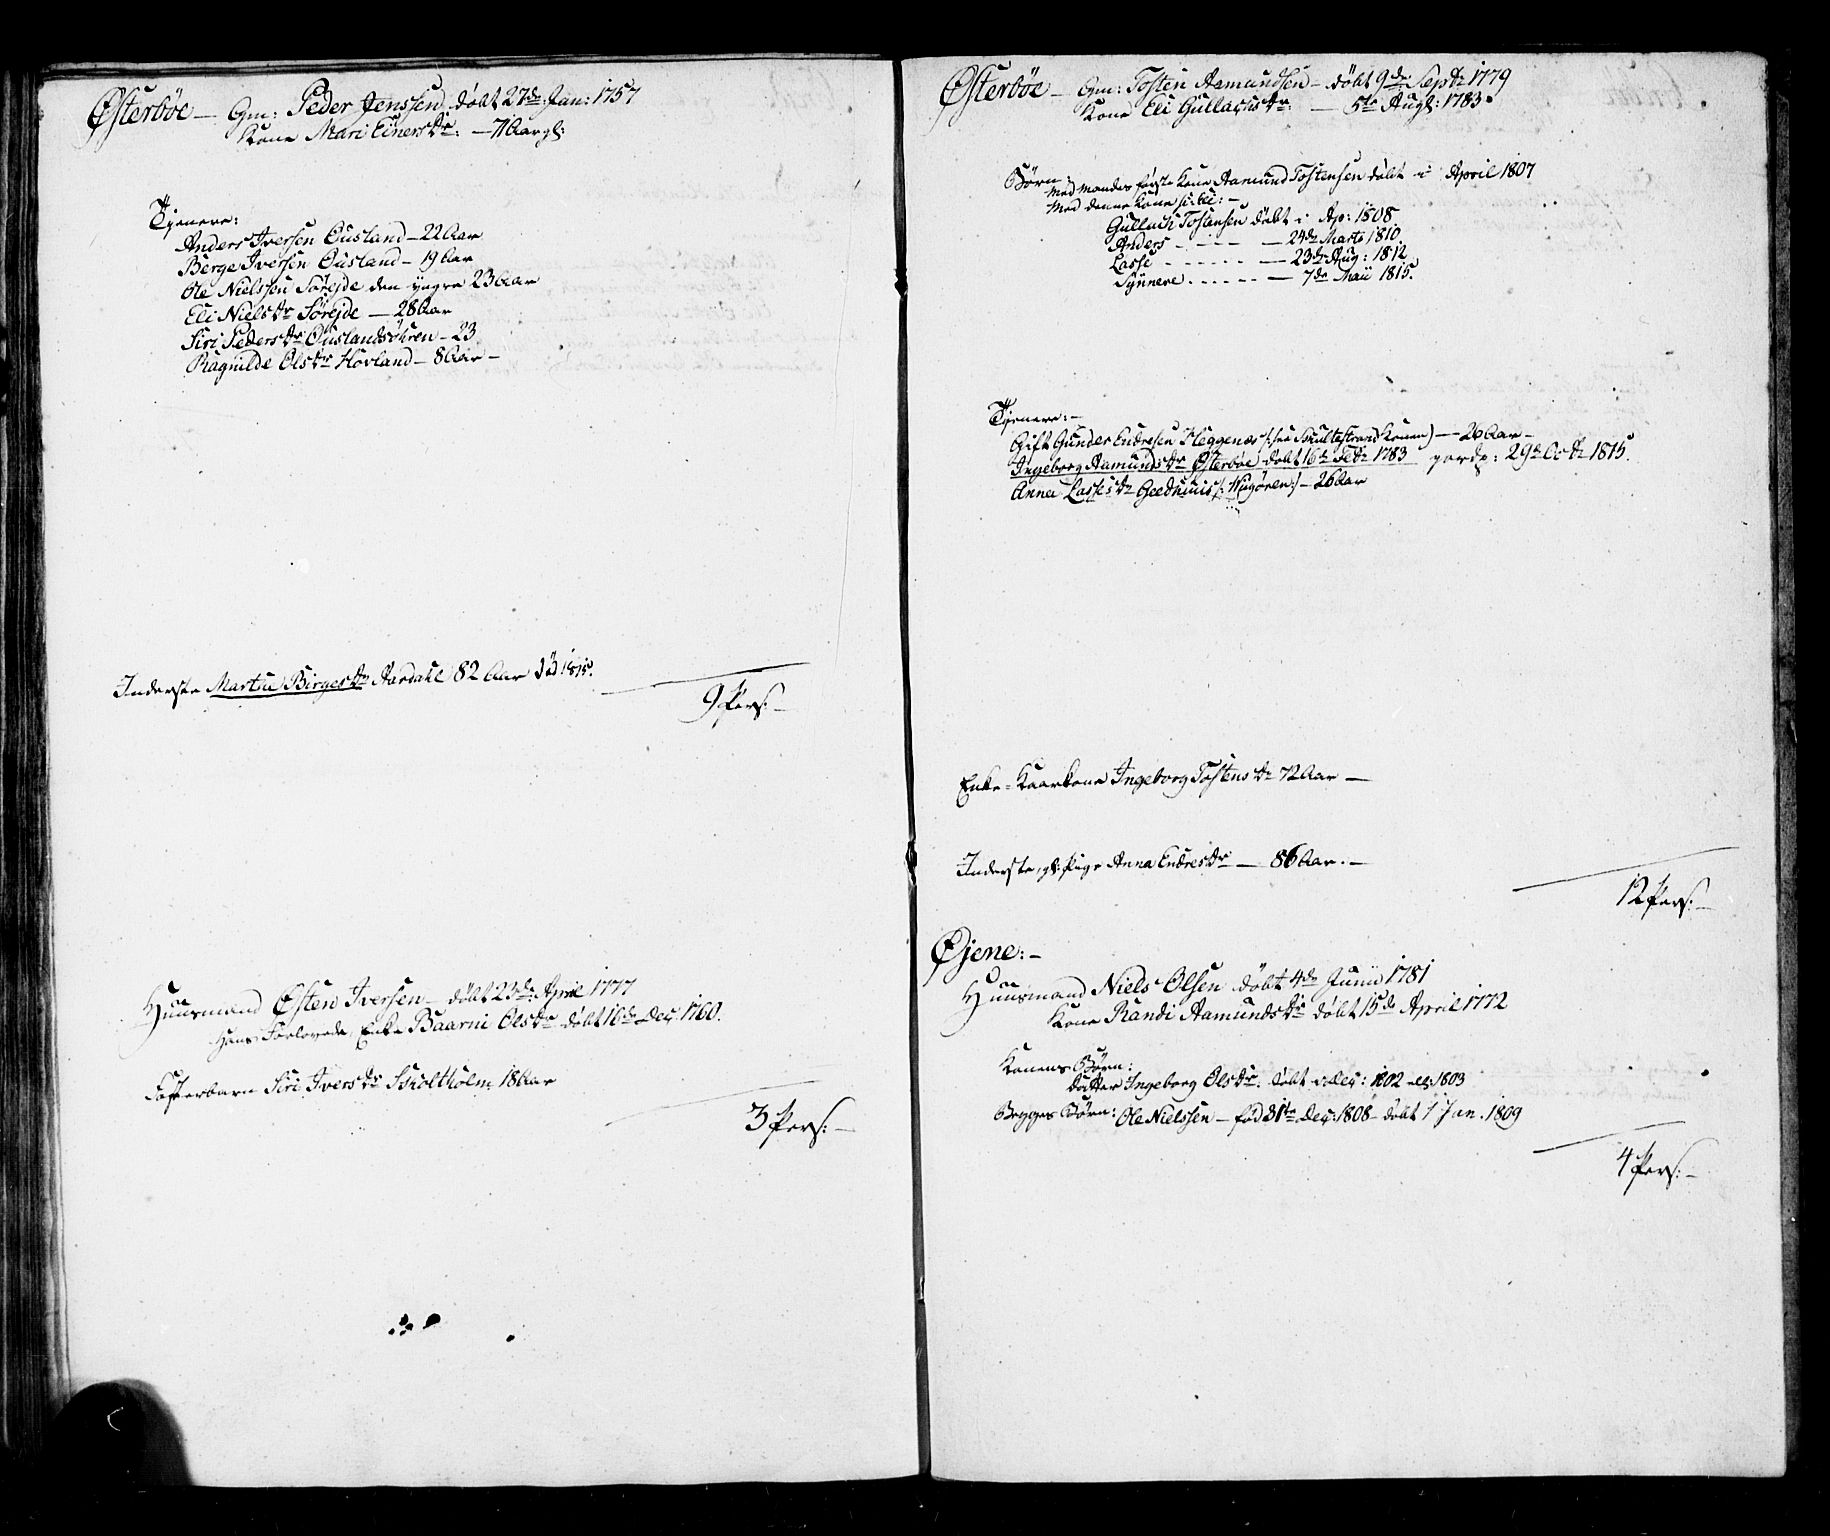 Østerbøe — Gm: Peder Jenssen døbt 27de Jan: 1757
Kone Mari Einersdr: — 71 Aar gl:
Tjenere:
Anders Iversen Ousland — 22 Aar
Berge Iversen Ousland — 19 Aar
Ole Nielssen Sørejde den yngre 23 Aar
Eli Nielsdr Sørejde — 28 Aar
Siri Pedersdr Ouslandsøhren — 23
Ragnilde Olsdr Hovland — 8 Aar —
Inderste Birgesdr Aardahl 82 Aar død 1815.
9 Pers: —
Huusmand Østen Iversen — døbt 23de April 1777
Hans Forlovede, Enke Baarni Olsdr døbt 16de Dec: 1760.
Fosterbarn Siri Iversdr 18 Aar
3 Pers: —
Østerbøe — Gm: Tosten Aamundsen — døbt 9de Septr 1779
Kone Eli Gullachsdr: — 5te Augl: 1783.
Børn:
Med Mandes første Kone Aamund Tostensen døbt i April 1807
Med denne Kone :
Gullach Tostensen døbt i Ap: 1808
Anders — — 24de Marts 1810
Lasse — — 23de Aug: 1812
Synneve — — 7de Maii 1815.
Tjenere: —
Gift Gunder Endresen Heggenæs Konen) — 26 Aar —
Ingeborg Aamundsdr Østerbøe døbt 16de 1783 29de Octr 1815.
Anna Lassesdr — 26 Aar
Enke-Kaarkone Ingeborg Tostensdr 72 Aar —
Inderste, gl: Pige Anna Endresdr — 86 Aar. —
12 Pers: —
Øjene: —
Huusmand Niels Olsen døbt 4de Junii 1781
Kone Randi Aamundsdr døbt 15de April 1772
Konens Børn:
Datter Ingeborg Olsdr. døbt i Dec: 1802 ell: 1803
Begges Børn: Ole Nielssen — fød 31te Dec: 1808 — døbt 1 Jan. 1809
4 Pers: —